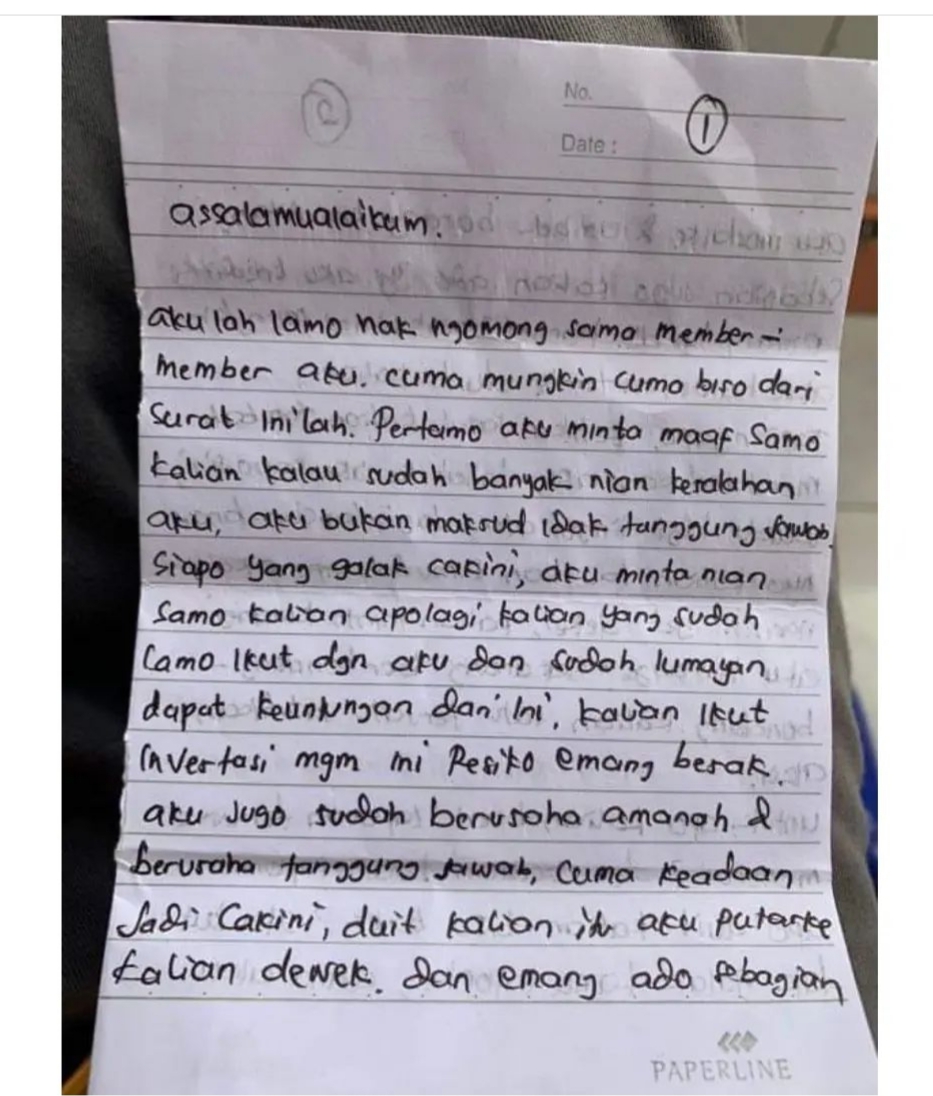 No.
1
2
Date :
assalamualaikum.
aku lah lamo nak ngomong samo member-
member aku. cuma mungkin cuma biso dari
Surat Ini lah. Pertamo aku minta maaf Samo
kalian kalau sudah banyak nian kesalahan
aku, aku bukan maksud idak tanggung jawab.
Siapo yang galak cakini, aku minta nian
Samo kalian apolagi kalian yang sudah
lamo Ikut dgn aku dan sudah lumayan
dapat keuntungan dari Ini. kalian Ikut
Invertasi mgm ini Resiko emang besak.
aku Jugo sudah berusaha amanah &
berusaha tanggung jawab, Cuma keadaan
Jadi Cakini, duit kalian itu aku putarke
kalian dewek. dan emang ado sebagian
PAPERLINE